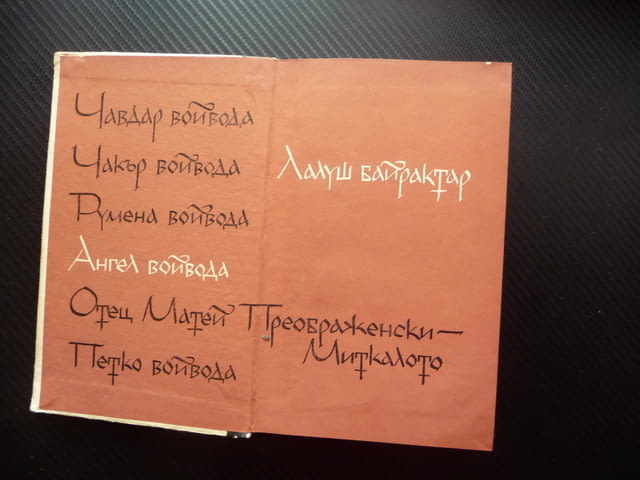 Чавдар войвода
Чакър войвода
Румена войвода
Ангел войвода
Отец Матей Преображенски—
Миткалото
Петко войвода
Лалуш байрактар